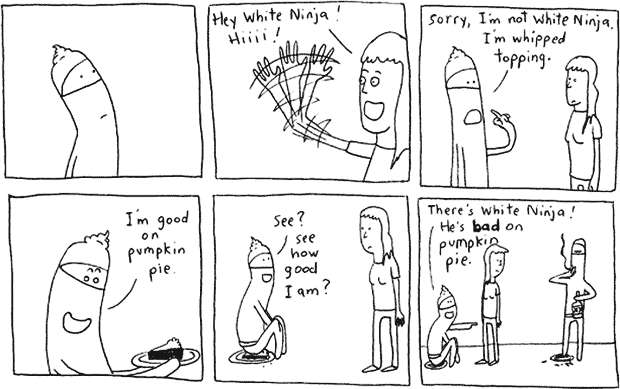 Hey White Ninja!
Hiiii!
Sorry, I'm not White Ninja.
I'm whipped
topping.
I'm good
on
pumpkin
pie.
See?
see
how
good
I am?
There's White Ninja!
He's bad on
pumpkin
pie.